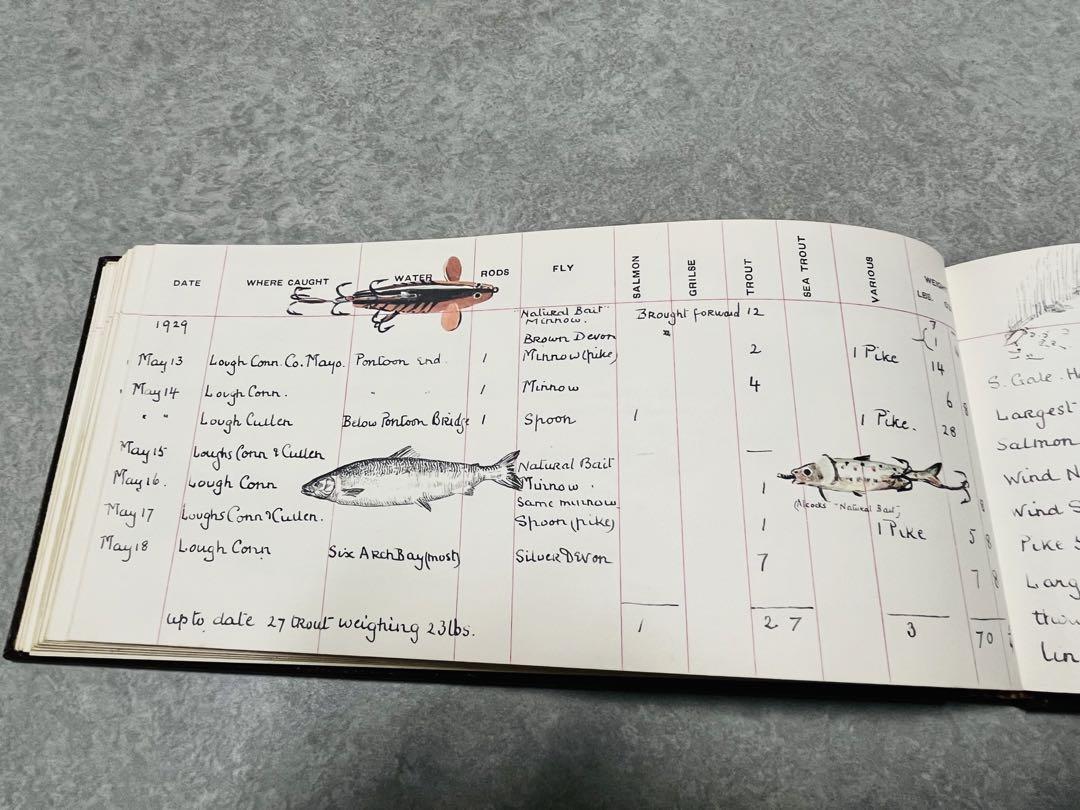 DATE WHERE CAUGHT WATER RODS FLY SALMON GRILSE TROUT SEA TROUT VARIOUS LBS.
1929 "Natural Bait" Minnow. Brought forward 12 7
May 13 Lough Conn. Co. Mayo. Pontoon End. 1 Brown Devon Minnow (pike) 2 1 Pike 1 14
May 14 Lough Conn. " 1 Minnow 4 6 8
" " Lough Cullen Below Pontoon Bridge 1 Spoon 1 1 Pike. 28
May 15 Loughs Conn & Cullen —
May 16. Lough Conn Natural Bait Minnow. 1 8
(Alcocks "Natural Bait")
May 17 Loughs Conn & Cullen. Same minnow Spoon (pike) 1 1 Pike 5 8
May 18 Lough Conn Six Arch Bay (most) Silver Devon 7 7 8
up to date 27 trout weighing 23 lbs. 1 27 3 70
S. Gale.
Largest
Salmon
Wind N
Wind S
Pike
Larg